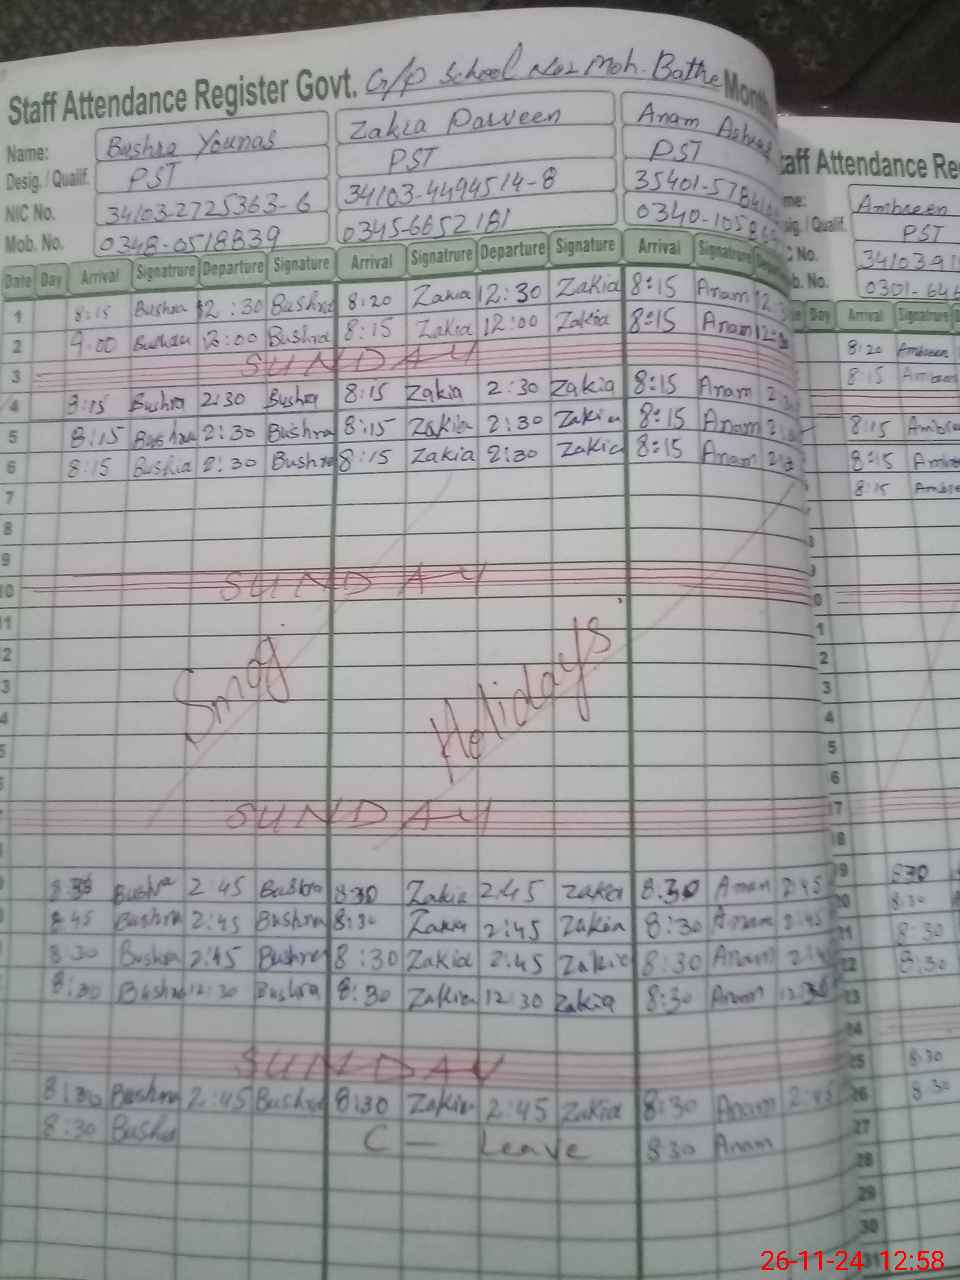 Staff Attendance Register Govt. G/P School No2 Moh. Bathe Month
Name: Bushra Younas Zakia Parveen Anam
Desig. / Qualif. PST PST PST
NIC No. 34103-2725363-6 34103-4494514-8 35401-578
Mob. No. 0348-0518839 0345-6652181 0340-105
Date Day Arrival Signatrure Departure Signature Arrival Signatrure Departure Signature Arrival Signatrure
1 8:15 Bushra 12:30 Bushra 8:20 Zakia 12:30 Zakia 8:15 Anam 12:3
2 9:00 Bushra 12:00 Bushra 8:15 Zakia 12:00 Zakia 8:15 Anam
3 SUNDAY
4 8:15 Bushra 2:30 Bushra 8:15 Zakia 2:30 Zakia 8:15 Anam
5 8:15 Bushra 2:30 Bushra 8:15 Zakia 2:30 Zakia 8:15 Anam
6 8:15 Bushra 2:30 Bushra 8:15 Zakia 2:30 Zakia 8:15 Anam
7
8
9
10 SUNDAY
11
Smog Holidays
SUNDAY
Bushra 2:45 Bushra 8:30 Zakia 2:45 Zakia 8.30 Anam 2:45
8:45 Bushra 2:45 Bushra 8:30 Zakia 2:45 Zakia 8:30 Anam 2:45
8:30 Bushra 2:45 Bushra 8:30 Zakia 2:45 Zakia 8:30 Anam
8:30 Bushra 12:30 Bushra 8:30 Zakia 12:30 Zakia 8:30 Anam 12:30
SUNDAY
8:30 Bushra 2:45 Bushra 8:30 Zakia 2:45 Zakia 8:30 Anam 2:45
8:30 Bushra C — Leave 8:30 Anam
Staff Attendance Re
Ambreen
Qualif. PST
No. 3410391
No. 0301-646
Day Arrival Signatrure
8:20 Ambreen
8:15 Ambreen
8:15
8:15
8:15
1
2
3
4
5
6
17
18
19 830
20 8:30
21 8:30
22 8:30
23
24
25 8:30
26 8:30
27
28
29
30
31
26-11-24 12:58